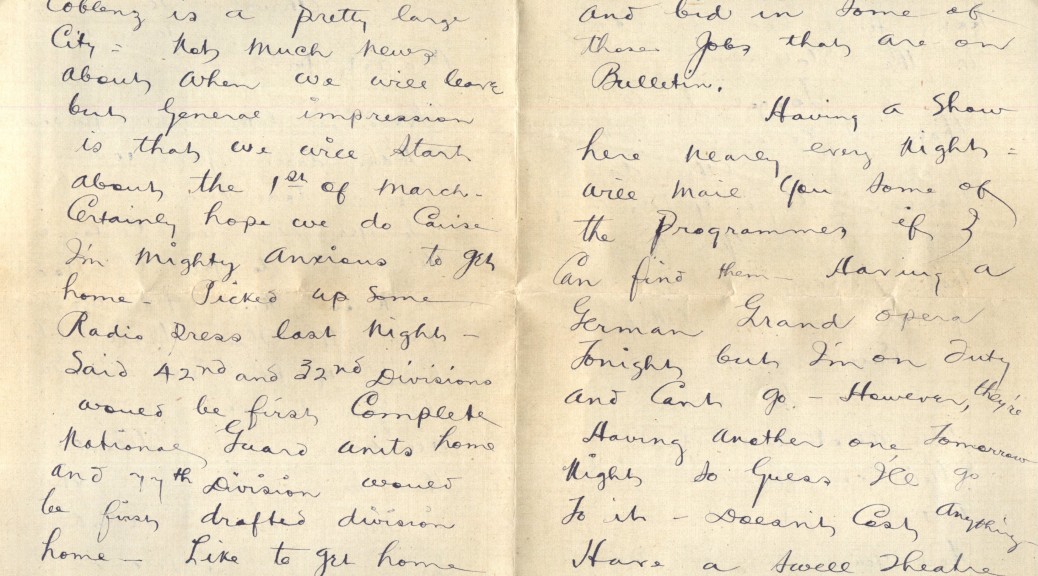 Coblenz is a pretty large
City = Not much news
about when we will leave
but General impression
is that we will start
about the 1st of March -
Certainly hope we do Cause
I'm Mighty Anxious to get
home - Picked up some
Radio Press last Night -
Said 42nd and 32nd Divisions
would be first Complete
National Guard units home
and 77th Division would
be first drafted division
home - Like to get home
and bid in some of
those Jobs that are on
Bulletin.
Having a Show
here nearly every Night =
will mail you some of
the Programmes if I
Can find them - Having a
German Grand Opera
Tonight but I'm on Duty
and Can't go. - However, they're
Having another one Tomorrow
Night so Guess I'll go
To it - Doesn't Cost anything
Have a swell Theatre